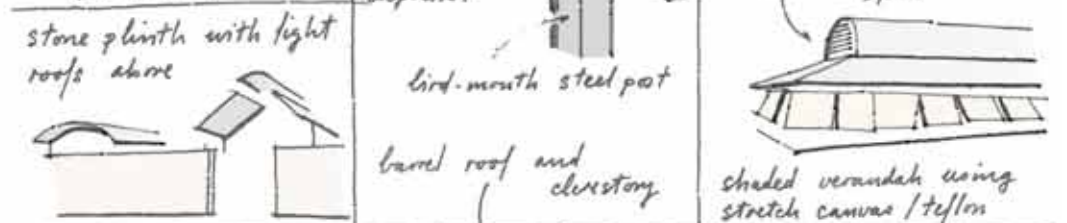 stone plinth with light
roofs above
bird-mouth steel post
barrel roof and
clerestory
shaded verandah using
stretch canvas / teflon